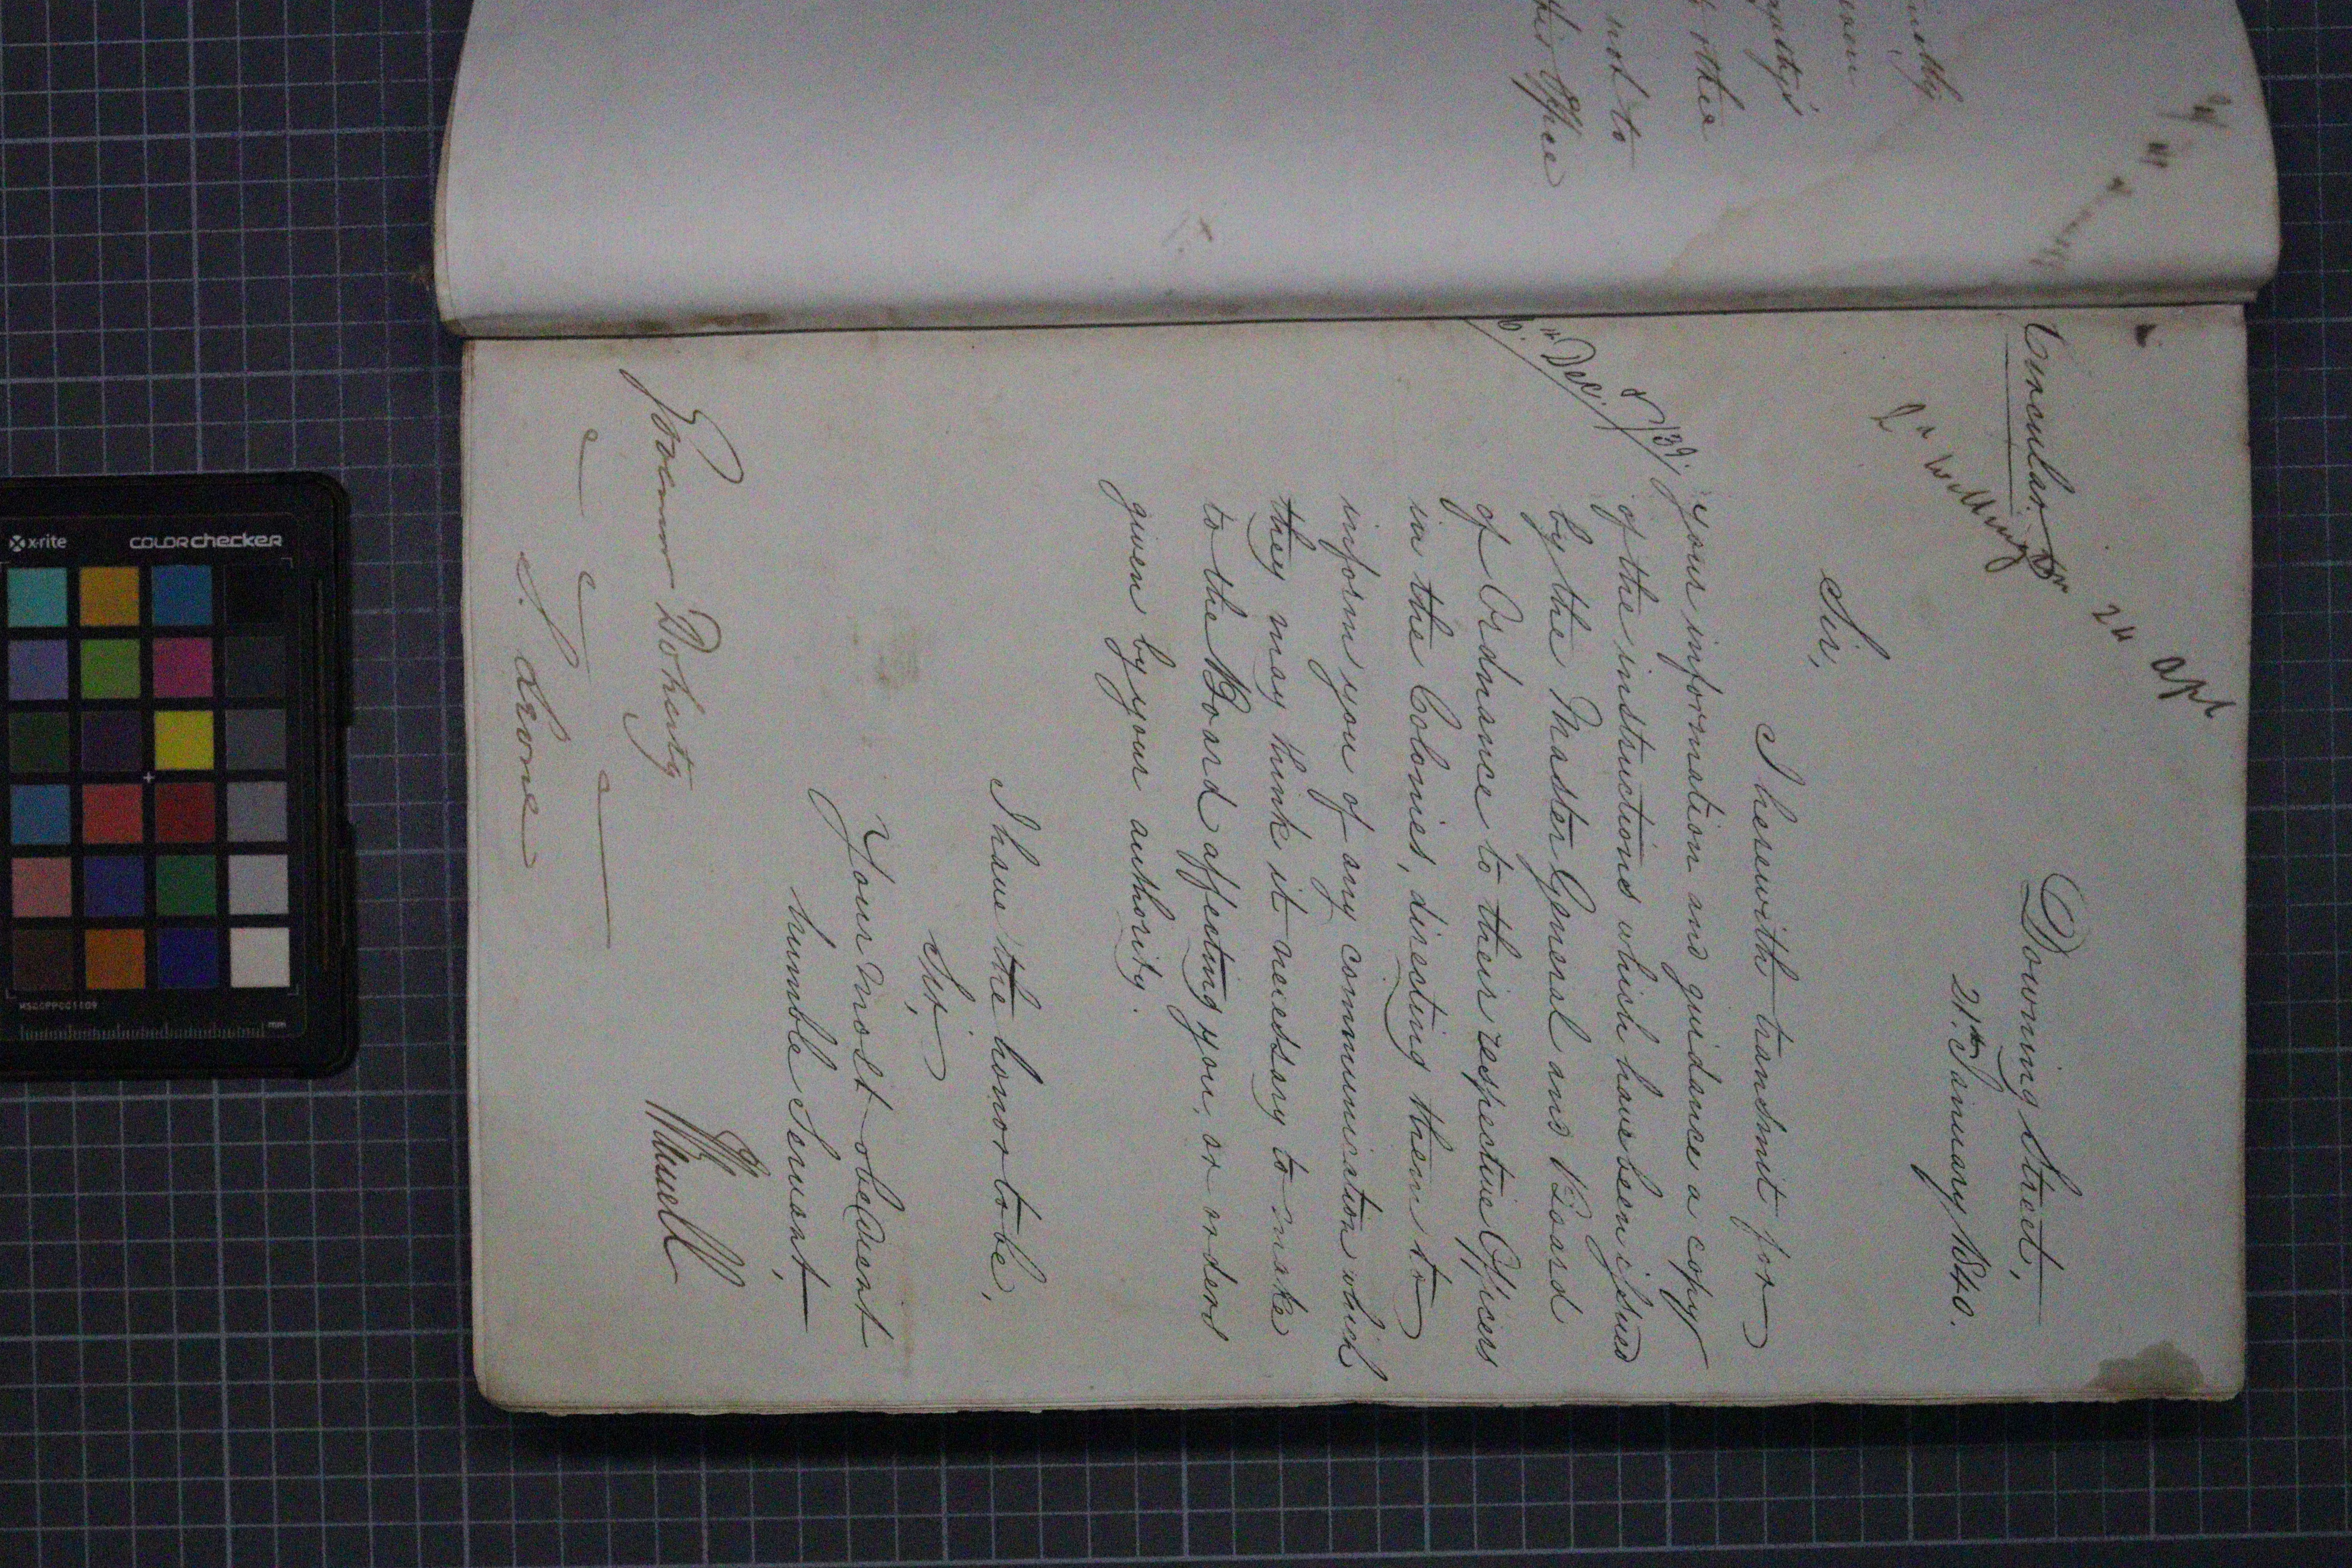 mitly
not to
other
this Office
Circular
2" Apl
Downing Street,
21.st January 1840.
Sir,
I herewith transmit for
your information and guidance a copy
6."Decr./39.
of the instructions which have been issued
by the Master General and Board
of Ordnance to their respective Officers
in the Colonies, directing them to
inform you of any communication which
they may think it necessary to make
to the Board affecting you, or orders
given by your authority.
I have the honor to be,
Sir,
Your most obedient
humble Servant,
JRussell
Governor Doherty
S. Leone
x-rite
colorchecker
MSCCPPCC1109
mm